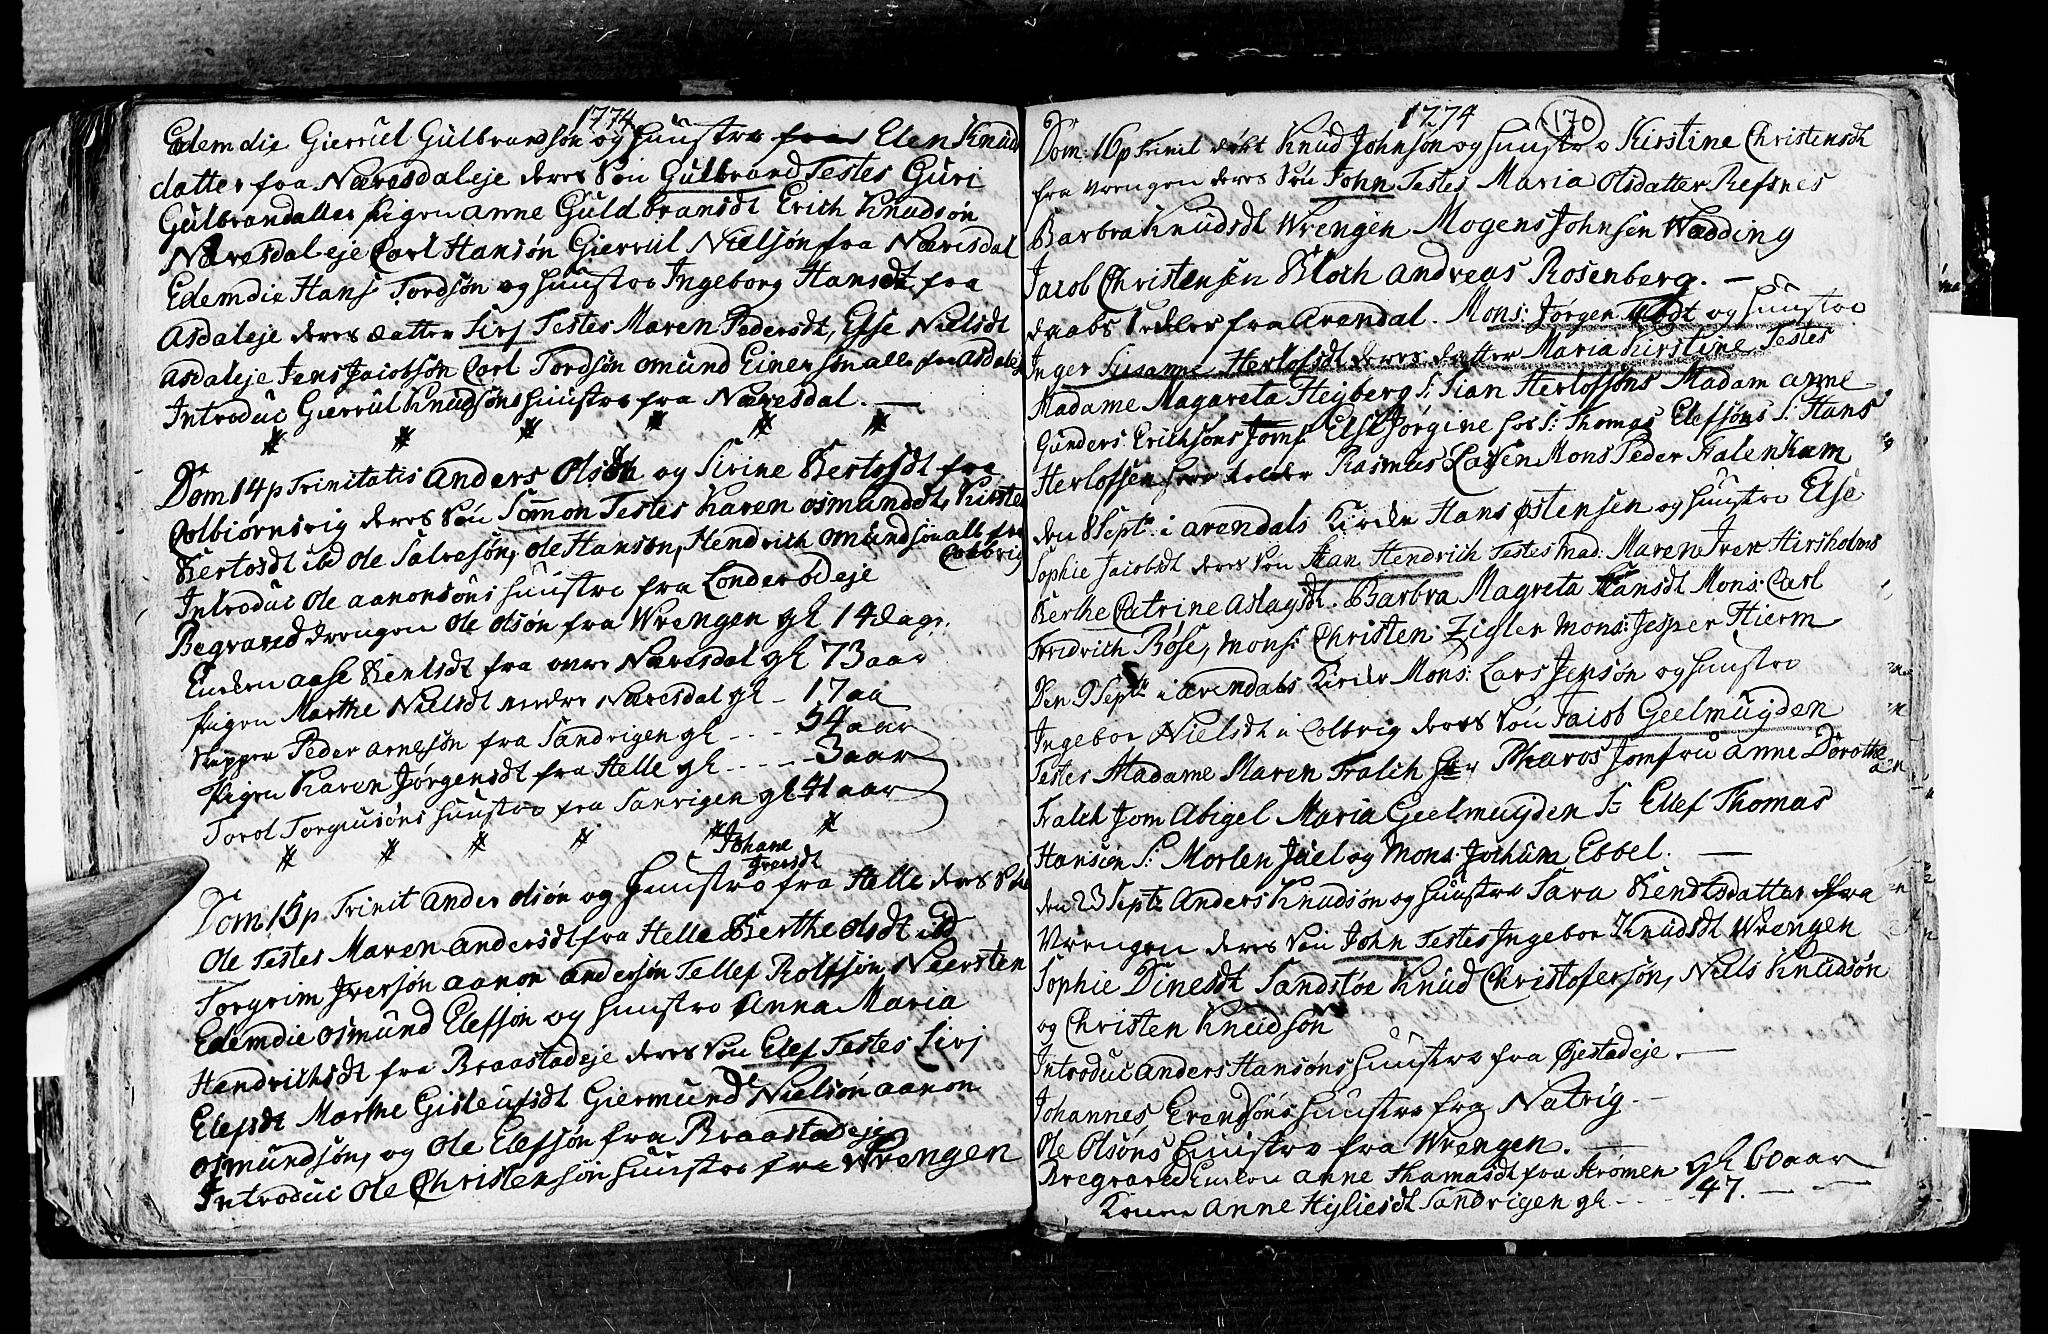 1774
Edemdie Gierrul Gulbrandsøn og huustro Elen Knud
datter fra Næresdaleje deres Søn Gulbrand Testes Guri
Gulbrandatter pigen Anne Guldbransdt Erich Knudsøn
Næresdaleje Carl Hansøn Gierrul Nielsøn fra Næresdal
Edemdie Hans Tordsøn og huustro Ingeborg Hansdt fra
Asdaleje deres datter Sirj Testes Maren Pedersdt, Else Nielsdt
Asdaleje Jens Jacobsøn Carl Tordsøn Omund Einersøn alle fra Asdalej
Introduc Gierrul Knudsøns huustro fra Næresdal. —
Dom 14 p Trinitatis Anders Olsøn og Sirine Bertosdt fra
Colbiørnsvig deres Søn Simon Testes Karen Osmunddt, Kirsten
Bertosdt ibd Ole Salvesøn, Ole Hansøn, Hendrich Omundsøn alle fra
Colbvig
Introduc Ole Aanonsøns huustro fra Londerødeje
Begraved drengen Ole Olsøn fra Wrengen gl 14 dage.
Enken Aase Bentsdt fra øvre Næresdal gl 73 aar
Pigen Marthe Nielsdt nedre Næresdal gl — 17 aa
Skipper Peder Arnesøn fra Sandvigen gl - - - 54 aar
Pigen Karen Jørgensdt fra Helle gl - - - - - 3 aar
Torol Torgiusøns huustro fra Sanvigen gl 41 aar
Johane
Iversdt
Dom 15 p Trinit Ander Olsøn og huustro fra Helle deres Søn
Ole Testes Maren Andersdt fra Helle Berthe Olsdt ibd
Torgrim Iversøn Aanon Andersøn Tellef Rolfsøn Neersten
Edemdie Osmund Elefsøn og huustro Anna Maria
Hendrichsdt fra Braastadeje deres Søn Elef Testes Sirj
Elefsdt Marthe Gisleufsdt Giermund Nielsøn Aanon
Osmundsøn, og Ole Elefsøn fra Braastadeje
Introduc Ole Christensøns huustro fra Wrengen
1774 170
Dom: 16 p Trinit døbt Knud Johnsøn og huustro Kirstine Christensdt
fra Vrengen deres Søn John Testes Maria Olsdatter Refsnes
Barbra Knudsdt Wrengen Mogens Johnsen Wedding
Jacob Christensen Bloch Andreas Rosenberg. —
daabs Sedler fra Arendal. Mons: Jørgen Tødt og huustro
Inger Susanne Herlofsdt deres datter Maria Kirstine Testes
Madame Magareta Heyberg S: Sian Herlofsøns Madam Anne
Gunders Erichsøns Jomf Else Jørgine hos S: Thomas Elefsøns S: Hans
Herlofsen Rasmus Lassen Mons Peder Falenkam
den 8 Septr i Arendals Kirke Hans Østensen og huustro Else
Sophie Jacobsdt deres Søn Jan Hendrich Testes Mad: Maren Iver Hirsholms
Berthe Catrine Aslagsdt. Barbra Magreta Hansdt Mons: Carl
Fredrich Bøse, Mons: Christen Zigler Mons: Jesper Hierm
Den 9 Septr i Arendals Kirke Mons: Lars Jensøn og huustro
Ingebor Nielsdt i Colbvig deres Søn Jacob Geelmuyden
Testes Madame Maren Falch Pharos Jomfru Anne Dorothea
Falch Jom Abigel Maria Geelmuyden S: Ellef Thomas
Hansøn S: Morten Juel og Mons: Jochum Ebbel. —
den 23 Septr Anders Knudsøn og huustro Sara Bendtsdatter fra
Vrengen deres Søn John Testes Ingebor Knudsdt Wrengen
Sophie Dinesdt Sandstøe Knud Christofersøn, Niels Knudsøn
og Christen Knudsøn
Introduc Anders Hansøns huustro fra Øjestadeje. —
Johannes Erendsøns huustro fra Natvig. —
Ole Olsøns huustro fra Wrengen. —
Bregraved Enken Anne Thamasdt fra Strømen gl 60 aar
Konen Anne Hyliesdt Sandvigen gl - - - 47. — —